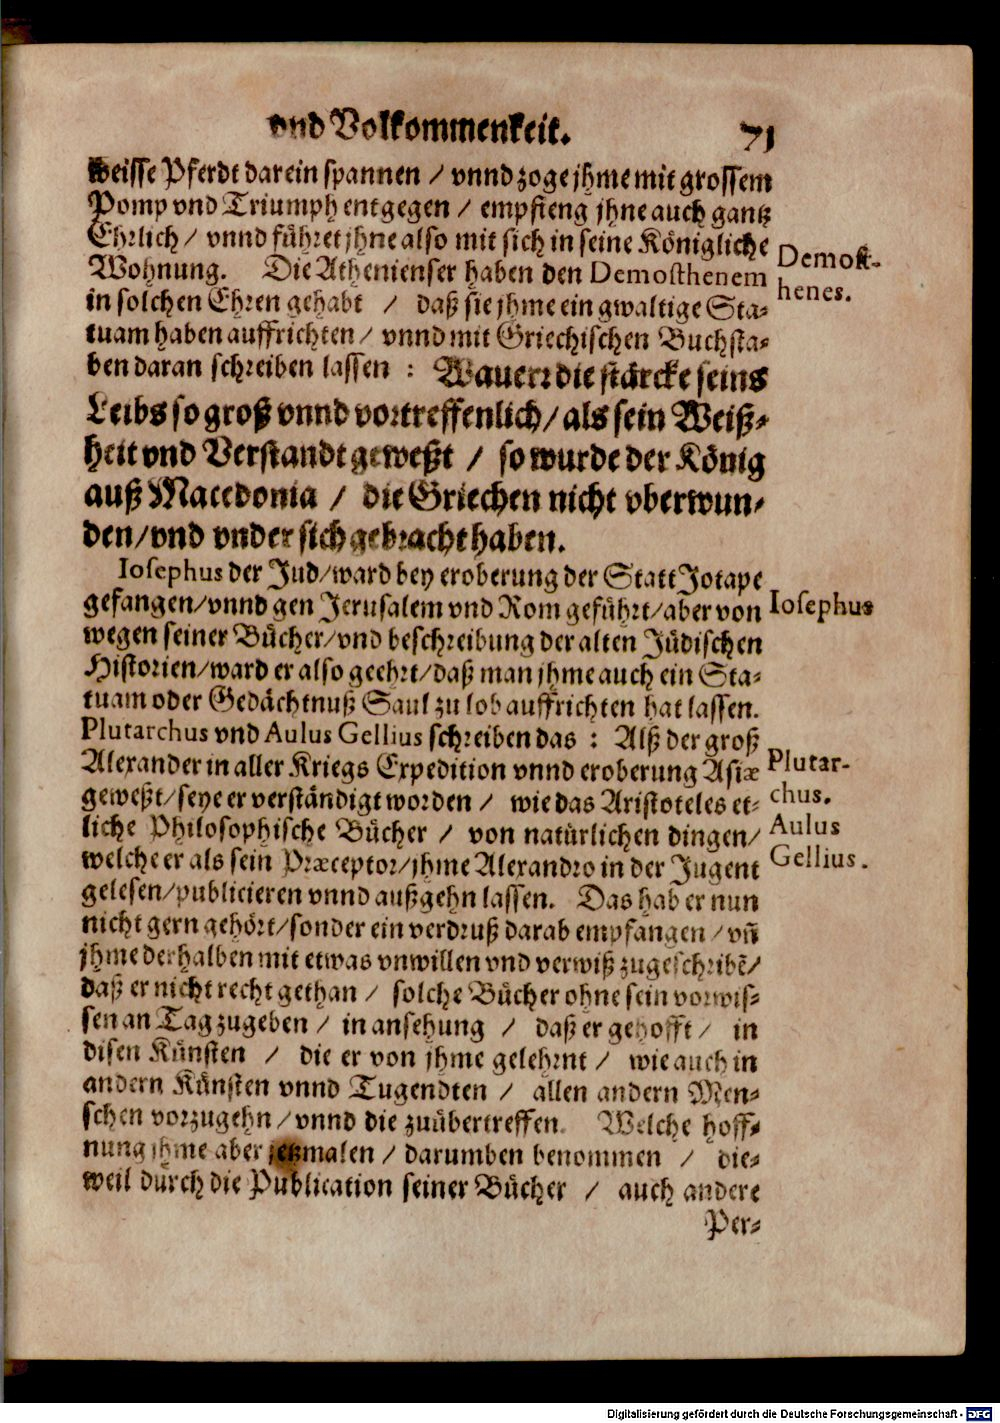 vnd Volkommenkeit. 71
weisse Pferdt darein spannen / vnnd zoge jhme mit grossem
Pomp vnd Triumph entgegen / empfieng jhne auch gantz
Ehrlich / vnnd führet jhne also mit sich in seine Königliche
Wohnung. Die Athenienser haben den Demosthenem
Demost-
henes.
in solchen Ehren gehabt / daß sie jhme ein gwaltige Sta-
tuam haben auffrichten / vnnd mit Griechischen Buchsta-
ben daran schreiben lassen : Wauerr die stärcke seins
Leibs so groß vnnd vortreffenlich / als sein Weiß-
heit vnd Verstandt geweßt / so wurde der König
auß Macedonia / die Griechen nicht vberwun-
den / vnd vnder sich gebracht haben.
Iosephus der Jud / ward bey eroberung der Statt Jotape
gefangen / vnnd gen Jerusalem vnd Rom geführt / aber von
Iosephus
wegen seiner Bücher / vnd beschreibung der alten Jüdischen
Historien / ward er also geehrt / daß man jhme auch ein Sta-
tuam oder Gedächtnuß Saul zu lob auffrichten hat lassen.
Plutarchus vnd Aulus Gellius schreiben das : Alß der groß
Alexander in aller Kriegs Expedition vnnd eroberung Asiæ
Plutar-
chus.
geweßt / seye er verständigt worden / wie das Aristoteles et-
liche Philosophische Bücher / von natürlichen dingen /
Aulus
Gellius.
welche er als sein Præceptor / jhme Alexandro in der Jugent
gelesen / publicieren vnnd außgehn lassen. Das hab er nun
nicht gern gehört / sonder ein verdruß darab empfangen / vñ
jhme derhalben mit etwas vnwillen vnd verwiß zugeschribē /
daß er nicht recht gethan / solche Bücher ohne sein vorwis-
sen an Tag zugeben / in ansehung / daß er gehofft / in
disen Künsten / die er von jhme gelehrnt / wie auch in
andern Künsten vnnd Tugendten / allen andern Men-
schen vorzugehn / vnnd die zuübertreffen. Welche hoff-
nung jhme aber jetzmalen / darumben benommen / die-
weil durch die Publication seiner Bücher / auch andere
Per-
Digitalisierung gefördert durch die Deutsche Forschungsgemeinschaft - DFG